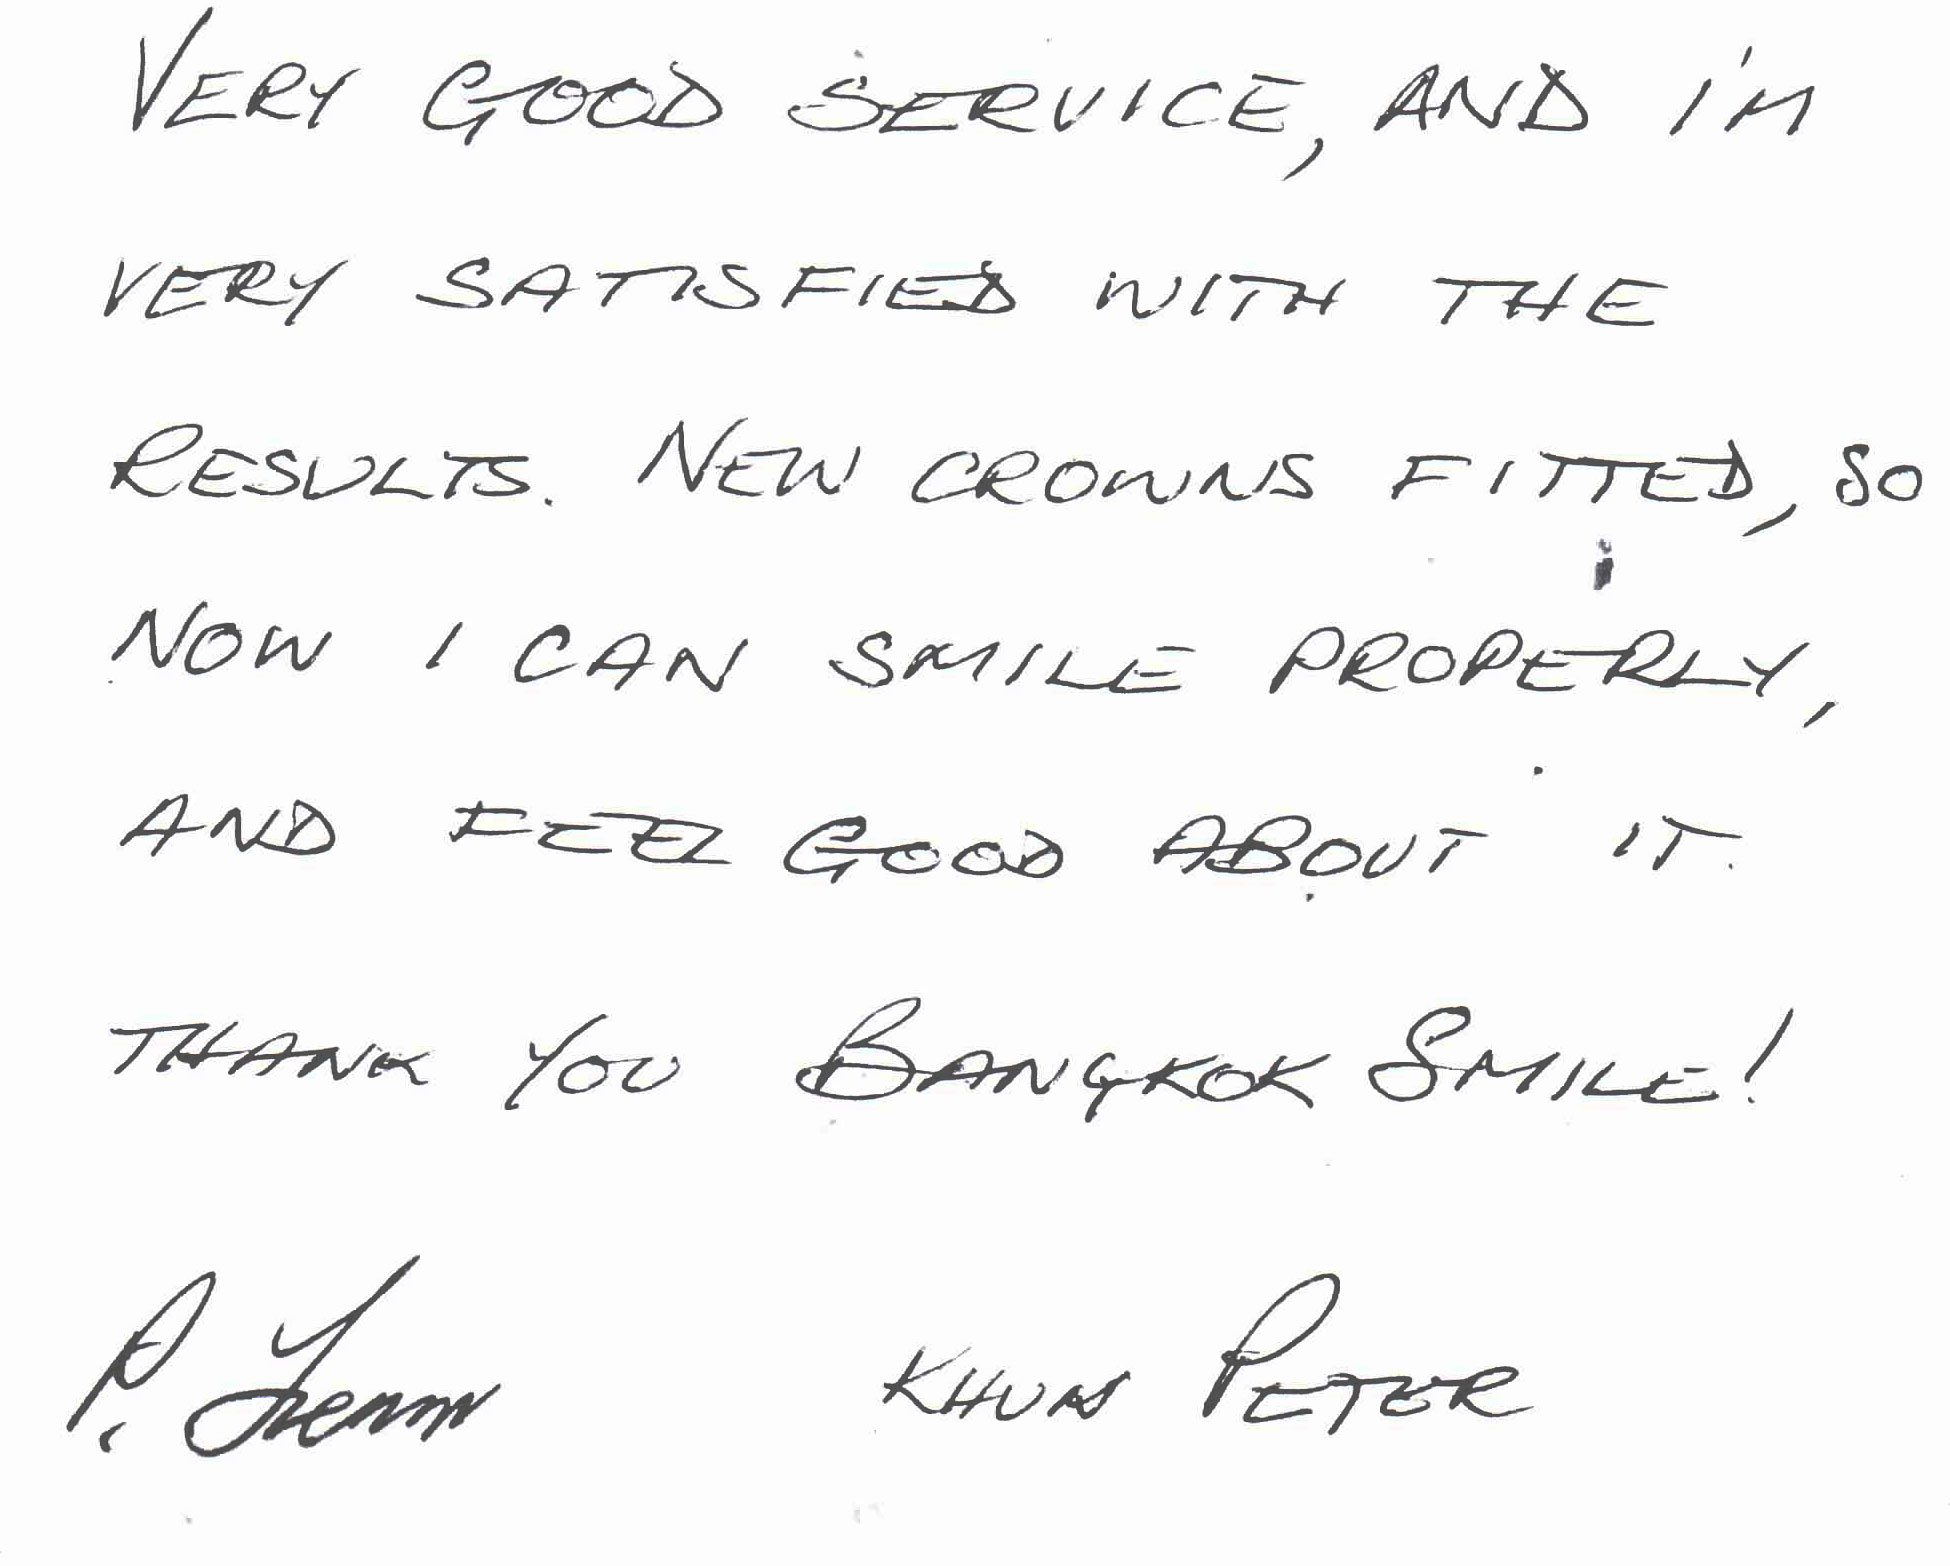 VERY GOOD SERVICE, AND I'M
VERY SATISFIED WITH THE
RESULTS. NEW CROWNS FITTED, SO
NOW I CAN SMILE PROPERLY,
AND FEEL GOOD ABOUT IT.
THANK YOU BANGKOK SMILE!
P.
KHUN PETER